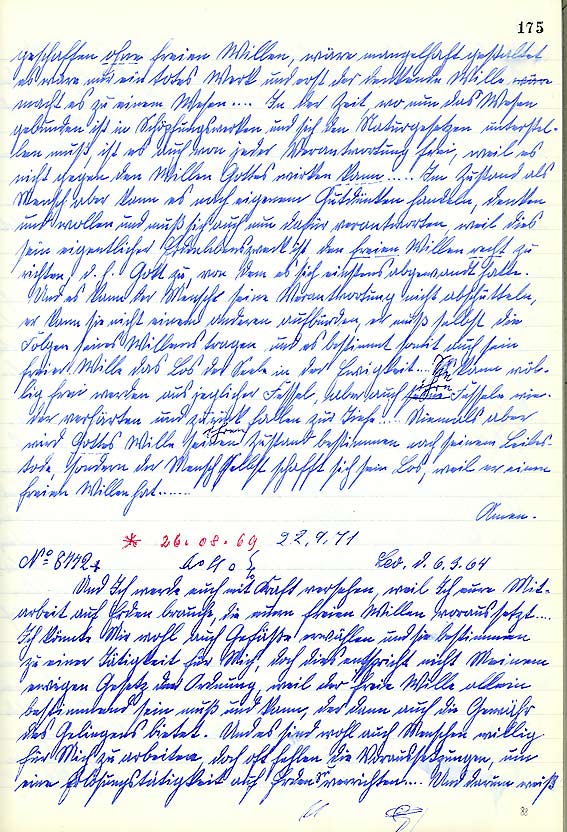 175
geschaffen ohne freien Willen, wäre mangelhaft gestaltet
es wäre nur ein totes Werk und erst der denkende Wille
macht es zu einem Wesen.... In der Zeit, wo nun das Wesen
gebunden ist in Schöpfungswerken und sich den Naturgesetzen unterstel-
len muß, ist es auch von jeder Verantwortung frei, weil es
nicht gegen den Willen Gottes wirken kann..... Im Zustand als
Mensch aber kann es nach eigenem Gutdünken handeln, denken
und wollen und muß sich auch nun dafür verantworten, weil dies
sein eigentlicher Erdenlebenszweck ist, den freien Willen recht zu
richten, d. h. Gott zu von dem es sich einstens abgewandt hatte.
Und es kann der Mensch seine Verantwortung nicht abschütteln,
er kann sie nicht einem anderen aufbürden, er muß selbst die
Folgen seines Willens tragen und es bestimmt somit auch sein
freier Wille das Los der Seele in der Ewigkeit... Sie kann völ-
lig frei werden aus jeglicher Fessel, aber auch ihre Fesseln wie-
der verhärten und zurück fallen zur Tiefe.... Niemals aber
wird Gottes Wille ihren Zustand bestimmen nach seinem Leibes-
tode sondern der Mensch selbst schafft sich sein Los, weil er einen
freien Willen hat.......
Amen.
26.08.69 22.9.71
No 8442 6.3.64
Und Ich werde euch mit Kraft versehen, weil Ich eure Mit-
arbeit auf Erden brauche, die euren freien Willen voraussetzt....
Ich könnte Mir wohl auch Gefäße erwählen und sie bestimmen
zu einer Tätigkeit für Mich, doch dies entspricht nicht Meinem
ewigen Gesetz der Ordnung, weil der freie Wille allein
bestimmend sein muß und kann, der dann auch die Gewähr
des Gelingens bietet. Und es sind wohl auch Menschen willig
für Mich zu arbeiten, doch oft fehlen die Voraussetzungen, um
eine Erlösungstätigkeit auf Erden zu verrichten.... Und darum weiß
88